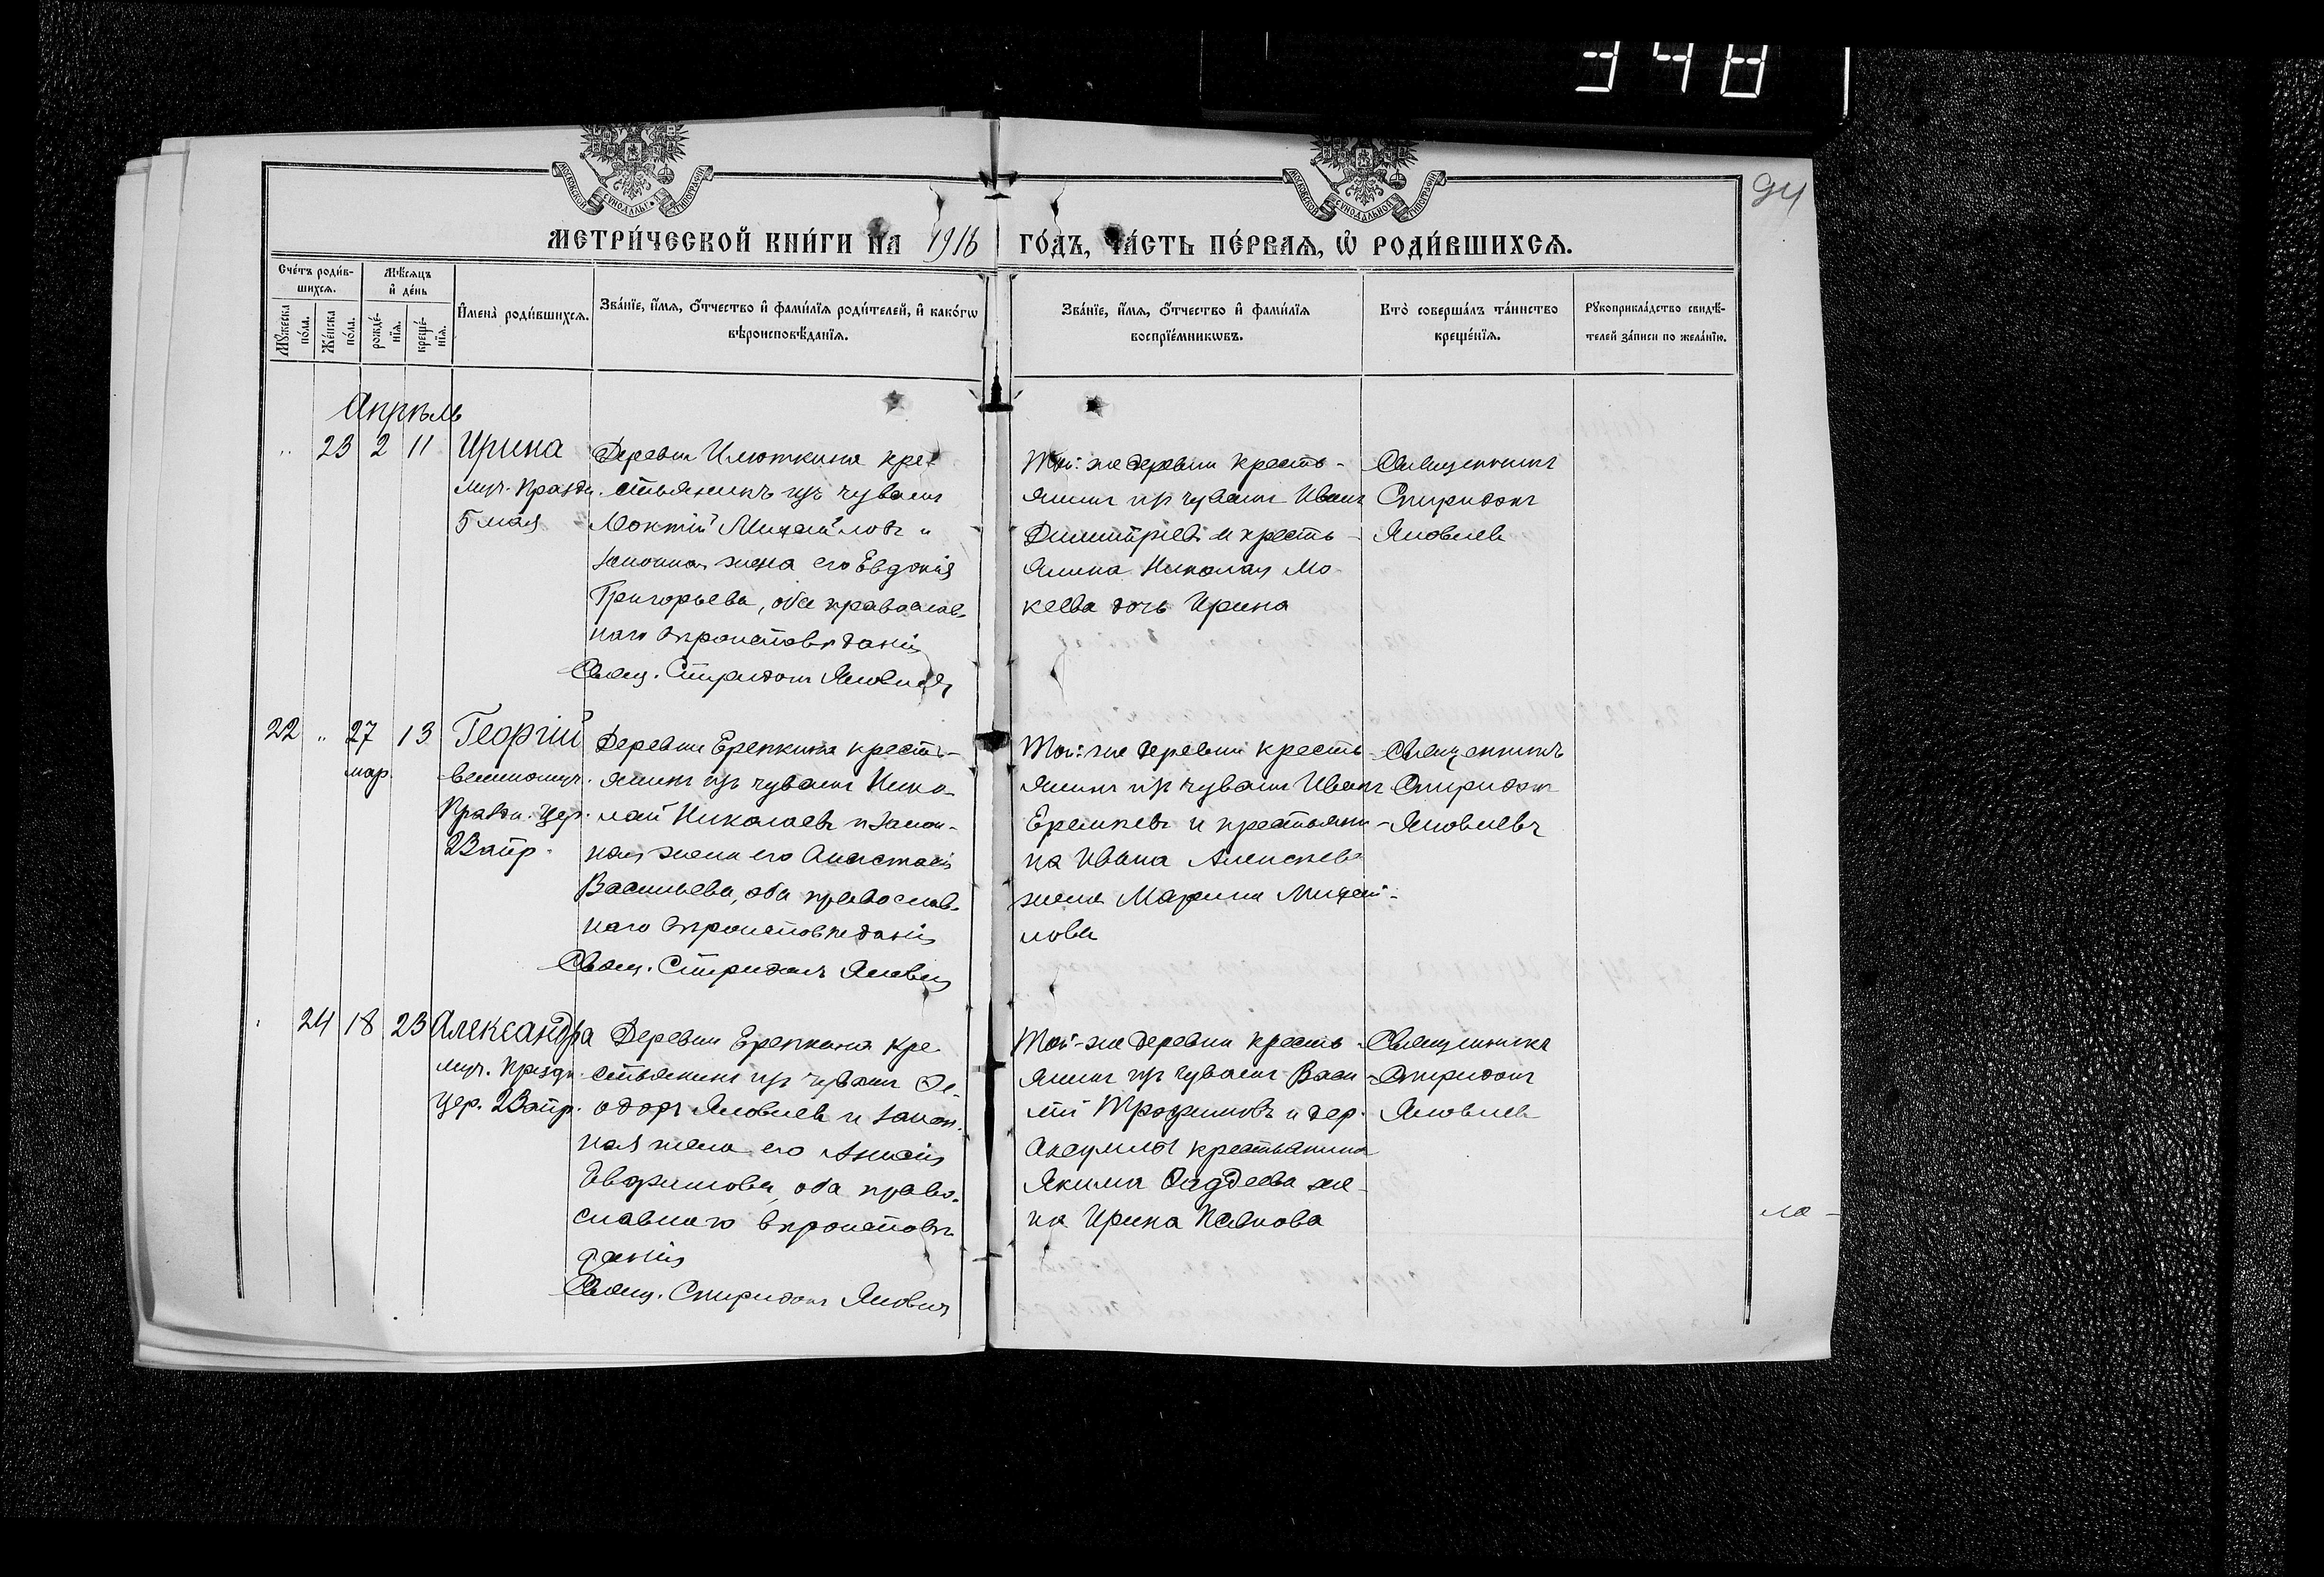 348
94
МОСКОВСКОЙ СѴНОДАЛЬНОЙ ТИПОГРАФІИ
МОСКОВСКОЙ СѴНОДАЛЬНОЙ ТИПОГРАФІИ
МЕТРИ́ЧЕСКОЙ КНИ́ГИ НА 1916 ГО́ДЪ, ЧА́СТЬ ПЕ́РВАѦ, Ѡ҆ РОДИ́ВШИХСѦ.
Сче́тъ роди́в-
шихсѧ.
Мѣ́сѧцъ
и҆ де́нь
Мꙋ́жеска
по́ла.
Же́нска
по́ла.
рожде́-
нїѧ.
креще́-
нїѧ.
И҆мена̀ роди́вшихсѧ.
Зва́нїе, и҆́мѧ, ѻ҆́тчество и҆ фами́лїѧ роди́телей, и҆ како́гѡ
вѣроисповѣ́данїѧ.
Зва́нїе, и҆́мѧ, ѻ҆́тчество и҆ фами́лїѧ
воспрїе́мникѡвъ.
Кто̀ соверша́лъ та́инство
креще́нїѧ.
Рꙋкоприкла́дство свидѣ́-
телей за́писи по жела́нїю.
Апрѣль
23 2 11 Ирина
муч. Празд.
5 мая
Деревни Илюткина кре-
стьянинъ изъ чувашъ
Михайловъ и
законная жена его Евдокія
Григорьева, оба православ-
наго вѣроисповѣданія
Свящ. Спиридонъ Яковлевъ
Той-же деревни кресть-
янинъ изъ чувашъ Иванъ
Димитріевъ и кресть-
янина Николая Мо-
кеева дочь Ирина
Священникъ
Спиридонъ
Яковлевъ
22 " 27 13 Георгій
мар.
великомуч.
Праздн. цер.
23 апр.
Деревни Ерепкина кресть-
янинъ изъ чувашъ Нико-
лай Николаевъ и закон-
ная жена его Анастасія
Васильева, оба православ-
наго вѣроисповѣданія
Свящ. Спиридонъ Яковлевъ
Той-же деревни кресть-
янинъ изъ чувашъ Иванъ
Еремѣевъ и крестьяни-
на Ивана Алексѣева
жена Марина Михай-
лова
Священникъ
Спиридонъ
Яковлевъ
24 18 23 Александра
муч. Праздн.
цер. 23 апр.
Деревни Ерепкина кре-
стьянинъ изъ чувашъ Ѳе-
одоръ Яковлевъ и закон-
ная жена его Анисія
Евфимова, оба право-
славнаго вѣроисповѣ-
данія
Свящ. Спиридонъ Яковлевъ
Той-же деревни кресть-
янинъ изъ чувашъ Васи-
лій Трофимовъ и дер.
крестьянина
Якима Ѳаддеева же-
на Ирина Павлова
Священникъ
Спиридонъ
Яковлевъ